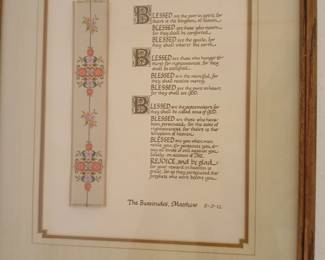 BLESSED are the poor in spirit, for
theirs is the kingdom of heaven
BLESSED are those who mourn
for they shall be comforted.
BLESSED are the gentle, for
they shall inherit the earth.
BLESSED are those who hunger
thirst for righteousness, for they
shall be satisfied.
BLESSED are the merciful, for
they shall receive mercy.
BLESSED are the pure in heart
for they shall see GOD.
BLESSED are the peacemakers for
they shall be called sons of GOD.
BLESSED are those who have
been persecuted for the sake
of righteousness, for theirs is the
kingdom of heaven.
BLESSED are you when men
revile you, & persecute you, &
say all kinds of evil against you
falsely, on account of ME.
REJOICE, and be glad,
for your reward in heaven is
great, for so they persecuted the
prophets who were before you.
The Beatitudes, Matthew 5:3-12